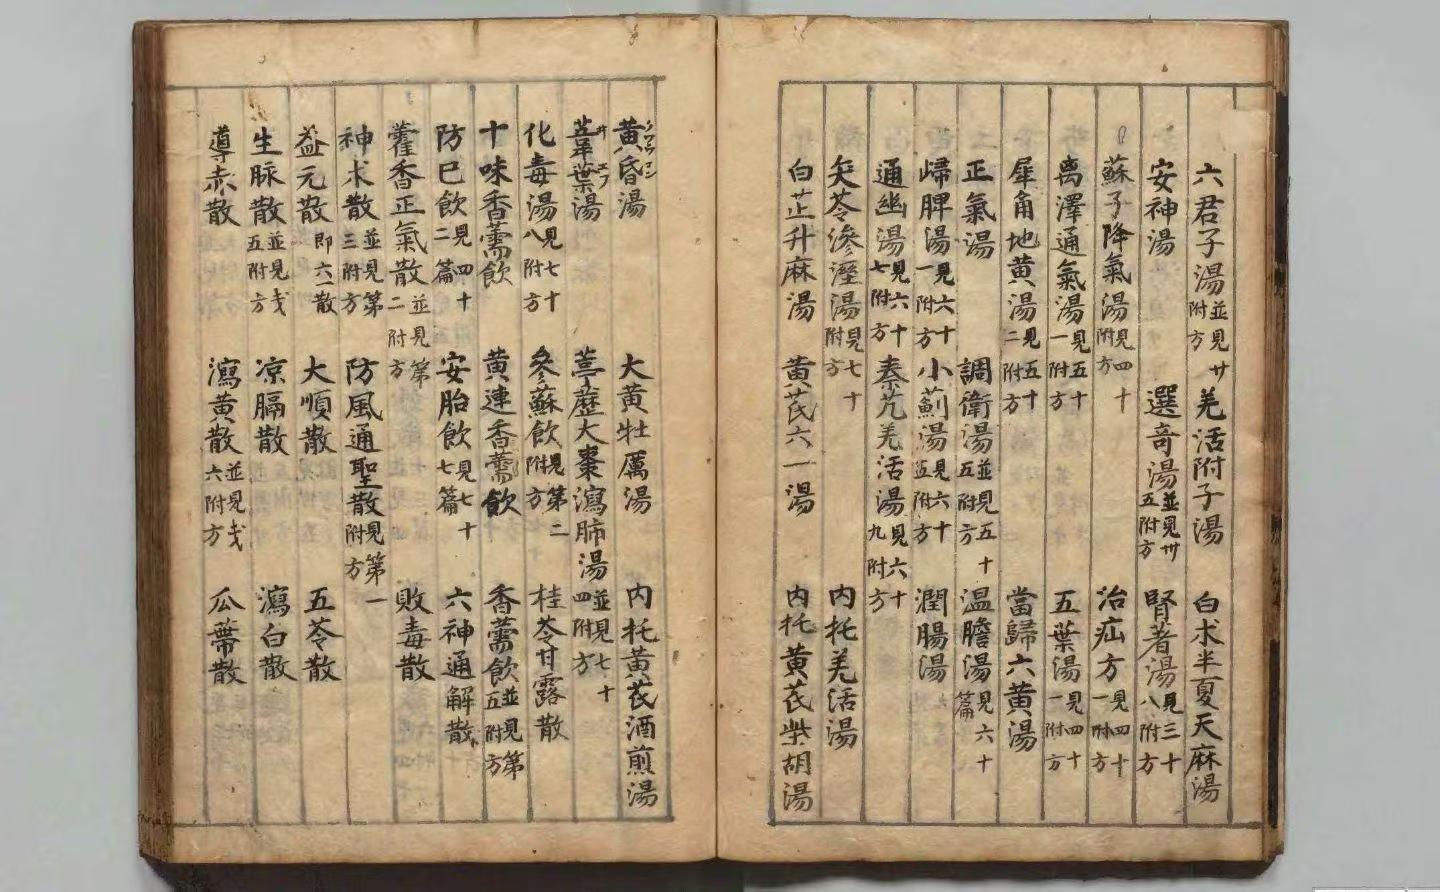 六君子湯 並見廿附方 羌活附子湯 白朮半夏天麻湯
安神湯 選竒湯 並見卅五附方 腎著湯 見三十八附方
蘇子降氣湯 見四十附方 治疝方 見四十一附方
离澤通氣湯 見五十一附方 五葉湯 見四十一附方
犀角地黄湯 見五十二附方 當歸六黄湯
正氣湯 調衛湯 並見五十五附方 温膽湯 見六十篇
歸脾湯 見六十一附方 小薊湯 見六十五附方 潤腸湯
通幽湯 見六十七附方 秦艽羌活湯 見六十九附方
矢苓滲溼湯 見七十附方 内托羌活湯
白芷升麻湯 黄芪六一湯 内托黄芪柴胡湯
黄昏湯 大黄牡厲湯 内托黄芪酒煎湯
葦葉湯 葶藶大棗瀉肺湯 並見七十四附方
化毒湯 見七十八附方 參蘇飲 見第二附方 桂苓甘露散
十味香薷飲 黄連香薷飲 香薷飲 並見第五附方
防巳飲 見四十二篇 安胎飲 見七十七篇 六神通解散
藿香正氣散 並見第二附方 敗毒散
神朮散 並見第三附方 防風通聖散 見第一附方
益元散 即六一散 大順散 五苓散
生脉散 並見弐五附方 凉膈散 瀉白散
導赤散 瀉黄散 並見弐六附方 瓜蔕散